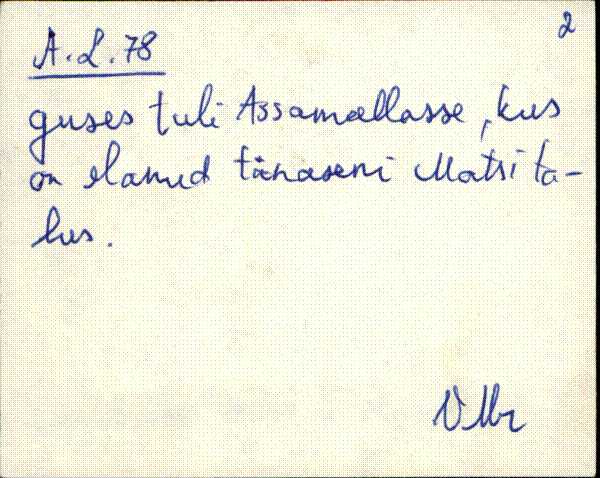 2
A.L.78
guses tuli Assamallasse, kus
on elanud tänaseni Matsi ta-
lus.
VMr